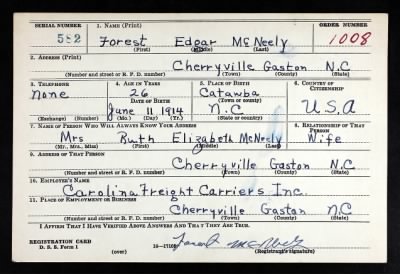 SERIAL NUMBER 1. NAME (Print) ORDER NUMBER
552 Forest Edgar McNeely 1008
(First) (Middle) (Last)
2. ADDRESS (Print)
Cherryville Gaston N.C
(Number and street or R. F. D. number) (Town) (County) (State)
3. TELEPHONE 4. AGE IN YEARS 5. PLACE OF BIRTH 6. COUNTRY OF CITIZENSHIP
None 26 Catawba
DATE OF BIRTH (Town or county)
June 11 1914 N.C U.S.A
(Exchange) (No.) (Mo.) (Day) (Yr.) (State or country)
7. NAME OF PERSON WHO WILL ALWAYS KNOW YOUR ADDRESS 8. RELATIONSHIP OF THAT PERSON
Mrs Ruth Elizabeth McNeely Wife
(Mr., Mrs., Miss) (First) (Middle) (Last)
9. ADDRESS OF THAT PERSON
Cherryville Gaston N.C
(Number and street or R. F. D. number) (Town) (County) (State)
10. EMPLOYER'S NAME
Carolina Freight Carriers Inc.
11. PLACE OF EMPLOYMENT OR BUSINESS
Cherryville Gaston N.C
(Number and street or R. F. D. number) (Town) (County) (State)
I AFFIRM THAT I HAVE VERIFIED ABOVE ANSWERS AND THAT THEY ARE TRUE.
REGISTRATION CARD
D. S. S. Form 1 (over) Forest McNeely
(Registrant's signature)